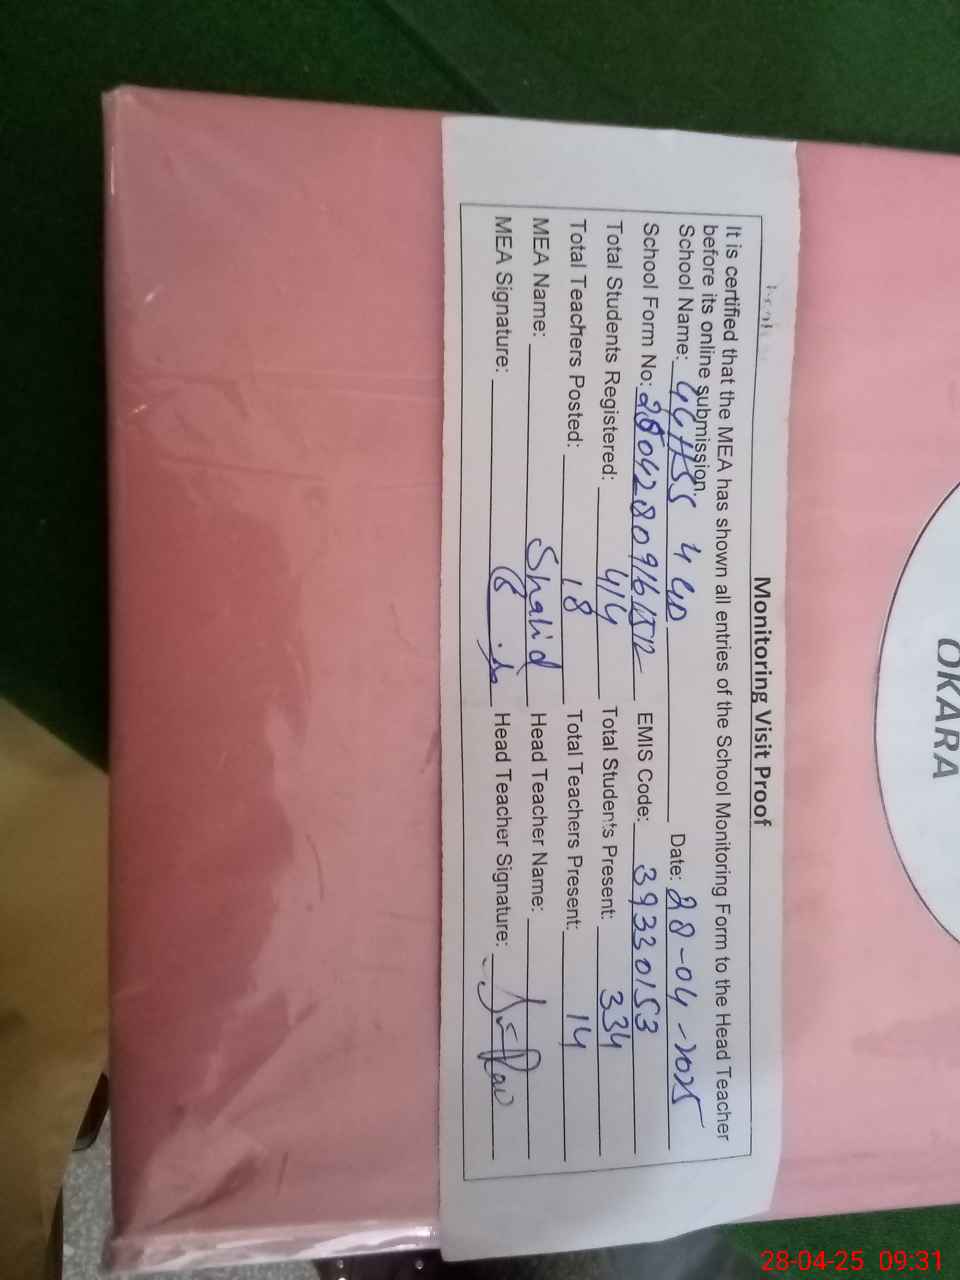 OKARA
Monitoring Visit Proof
It is certified that the MEA has shown all entries of the School Monitoring Form to the Head Teacher
before its online submission.
School Name: GGHSS 4 GD Date: 28-04-2025
School Form No: EMIS Code: 39330153
Total Students Registered: 414 Total Students Present: 334
Total Teachers Posted: 18 Total Teachers Present: 14
MEA Name: Shahid Head Teacher Name:
MEA Signature: Head Teacher Signature:
28-04-25 09:31